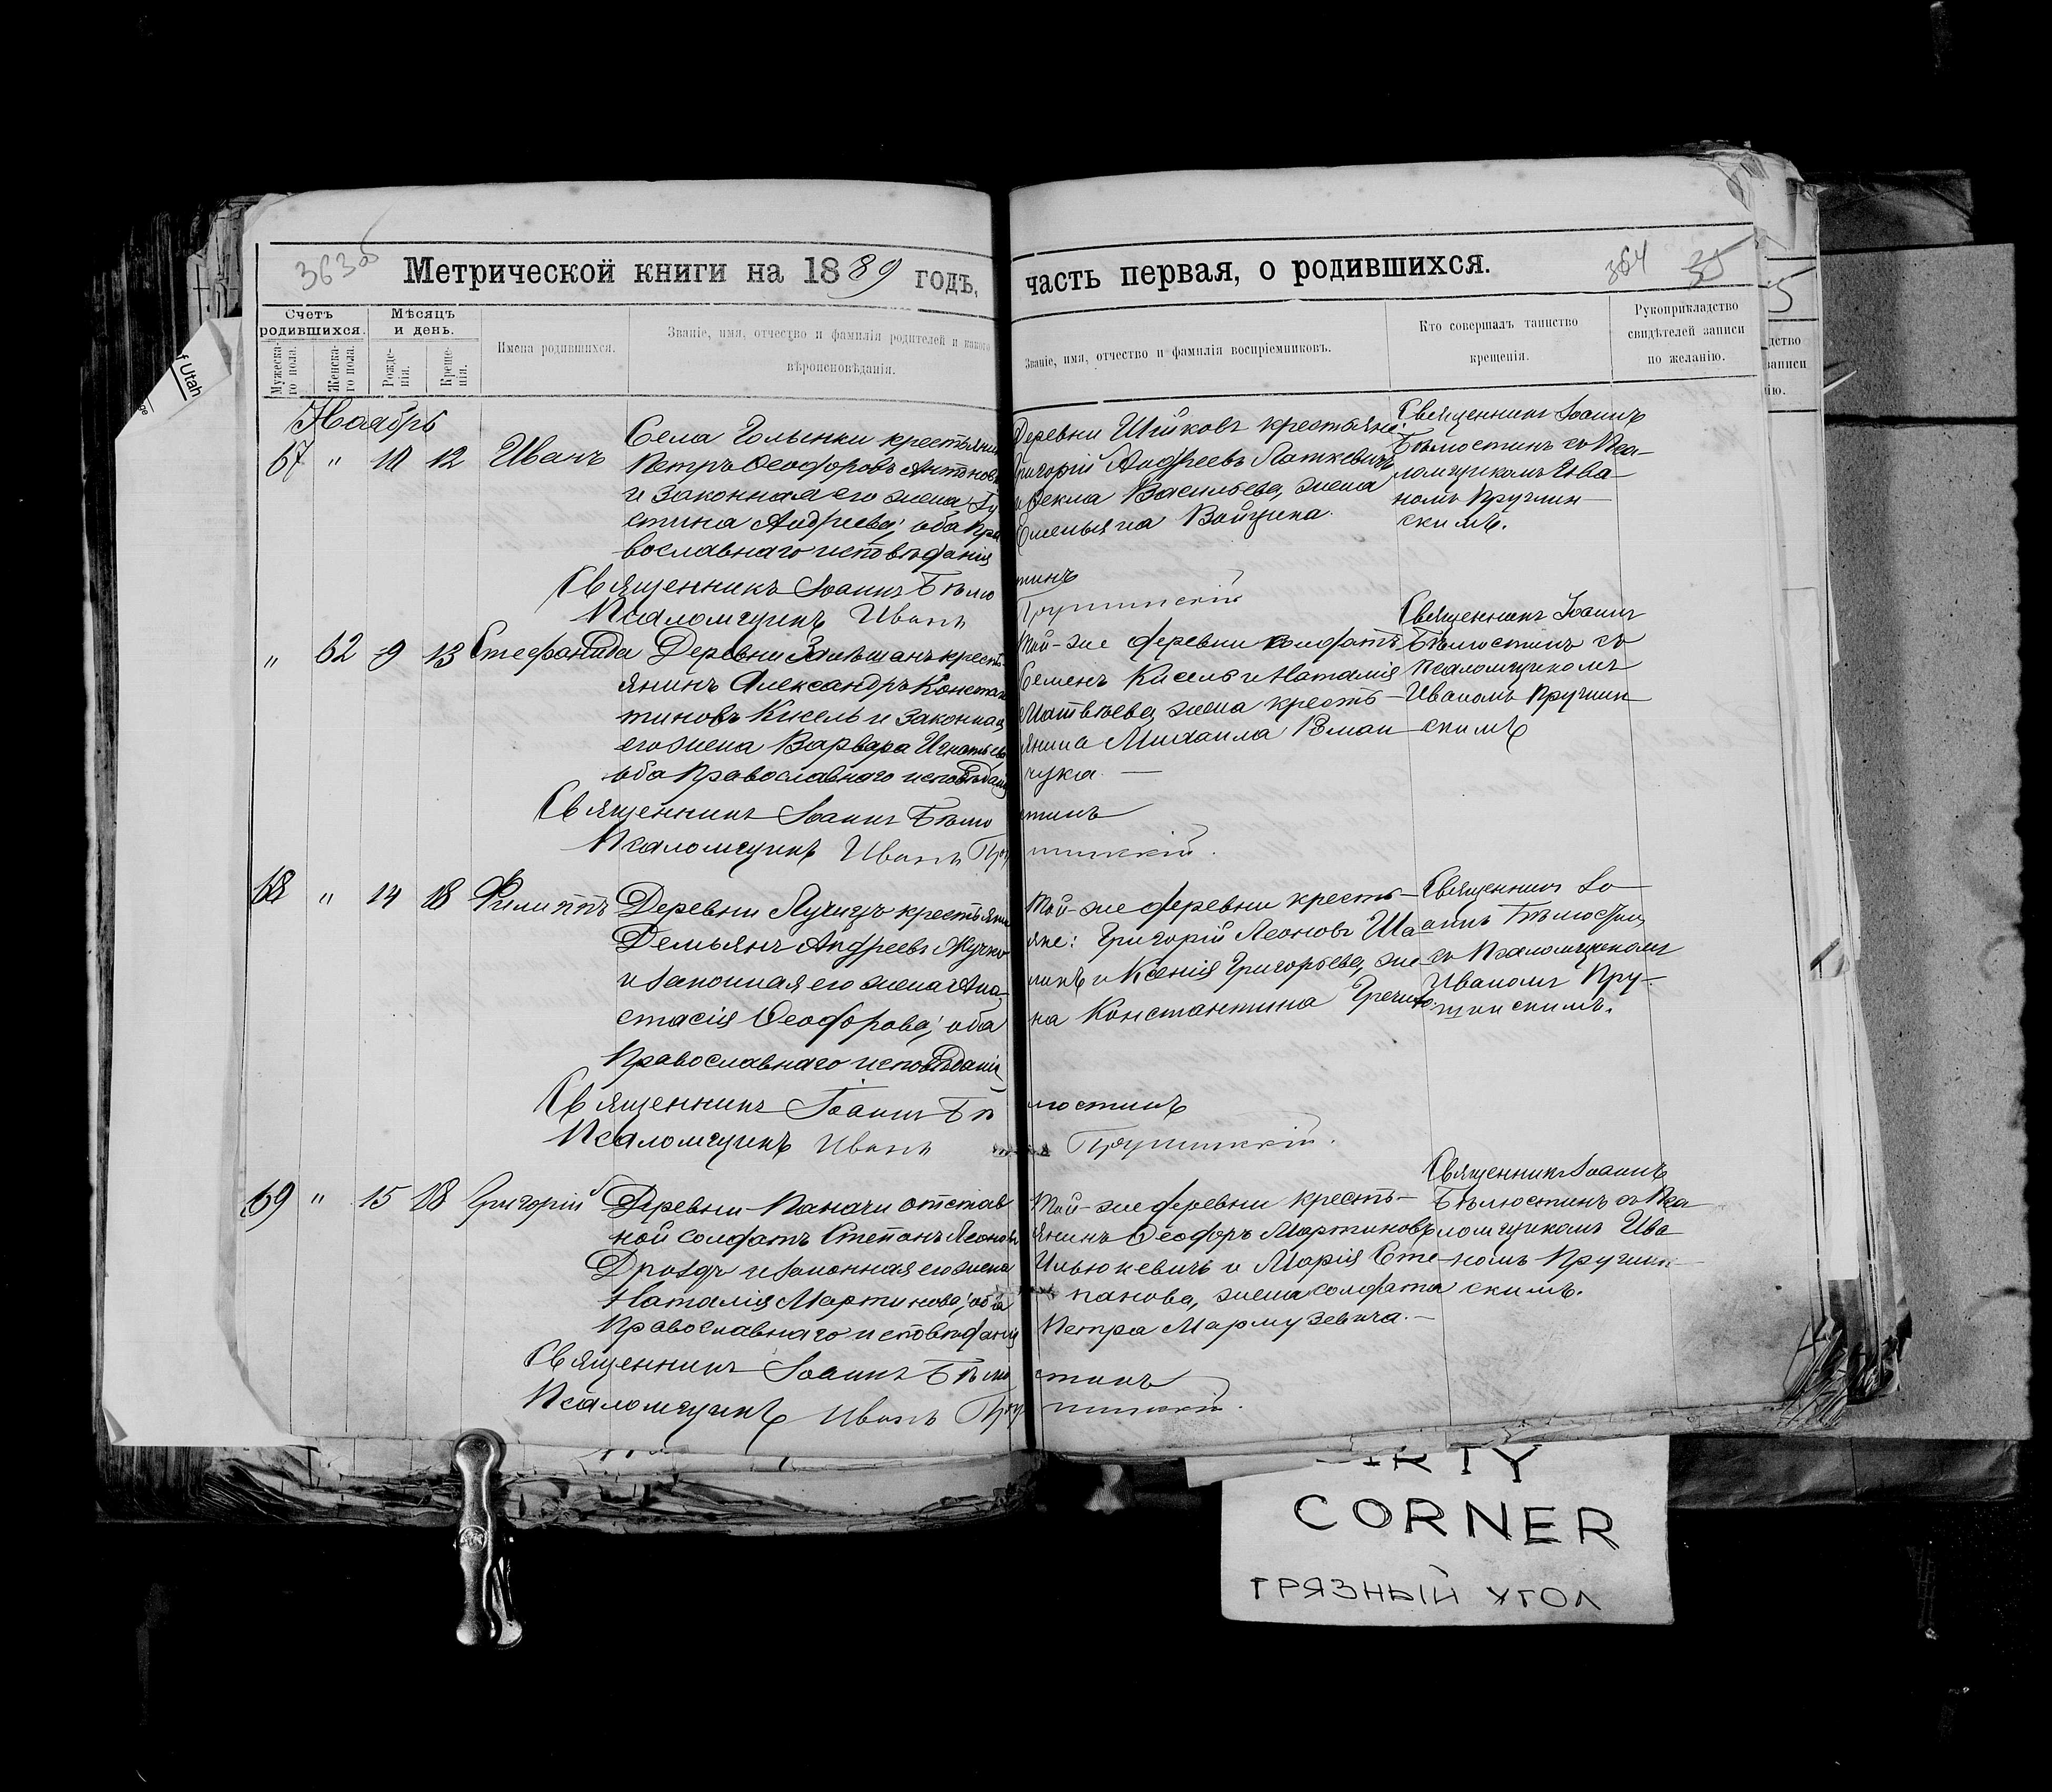 363 об
Метрической книги на 1889 годъ,
часть первая, о родившихся.
364 35
Счетъ родившихся.
Мѣсяцъ и день.
Мужеска-го пола.
Женска-го пола.
Рожде-нія.
Креще-нія.
Имена родившихся.
Званіе, имя, отчество и фамилія родителей и какого
вѣроисповѣданія.
Званіе, имя, отчество и фамилія воспріемниковъ.
Кто совершалъ таинство
крещенія.
Рукоприкладство
свидѣтелей записи
по желанію.
Ноябрь
67 " 10 12 Иванъ
Села Голынки крестьянин
Петръ Ѳеодоровъ Антонов
и законная его жена Гу
стина Андреева; оба пра
вославнаго исповѣданія
Деревни крестьяне:
Григорій Андреевъ Латкевичъ
и Ѳекла Васильева, жена
Емельяна Войцика.
Священникъ Іоаннъ
Бѣлюстинъ съ Пса-
ломщикомъ Ива-
номъ Пручин-
скимъ.
Священникъ Іоаннъ Бѣлю
стинъ
Псаломщикъ Иванъ
" 62 9 13 Стефанида
Деревни крестья-
янинъ Александръ Констан
тиновъ Кисель и законная
его жена Варвара Игнатьева
оба Православнаго исповѣданія
Той-же деревни солдатъ
Семенъ Кисель и Наталія
Матвѣева, жена кресть-
янина Михаила Роман
чука. —
Священникъ Іоаннъ
Бѣлюстинъ съ
псаломщикомъ
Иваномъ Пручин
скимъ
Священникъ Іоаннъ Бѣлю
стинъ
Псаломщикъ Иванъ
68 " 14 18 Филиппъ
Деревни Лучицъ крестьянин
Демьянъ Андреевъ Жучко
и законная его жена Ана-
стасія Ѳеодорова; оба
Православнаго исповѣданія
Той-же деревни кресть-
яне: Григорій Леоновъ Ша
и Ксенія Григорьева, же
на Константина
Священникъ Іо-
аннъ Бѣлюстинъ
съ Псаломщикомъ
Иваномъ Пру-
чинскимъ.
Священникъ Іоаннъ Бѣ
люстинъ
Псаломщикъ Иванъ
69 " 15 18 Григорій
Деревни Паначи отстав
ной солдатъ Степанъ Леоновъ
Дроздъ и законная его жена
Наталія Мартинова; оба
православнаго исповѣданія
Той-же деревни кресть-
янинъ Ѳеодоръ Мартиновъ
Ильюкевичъ и Марія Сте-
панова, жена солдата
Петра Мармузевича. —
Священникъ Іоаннъ
Бѣлюстинъ съ Пса
ломщикомъ Ива
номъ Пручин-
скимъ.
Священникъ Іоаннъ Бѣлю
стинъ
Псаломщикъ Иванъ
CORNER
ГРЯЗНЫЙ УГОЛ